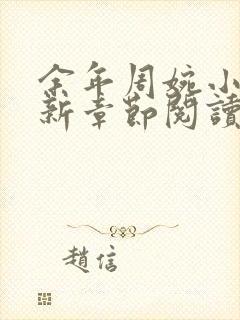 余年周婉小
新章節閱讀
趙信